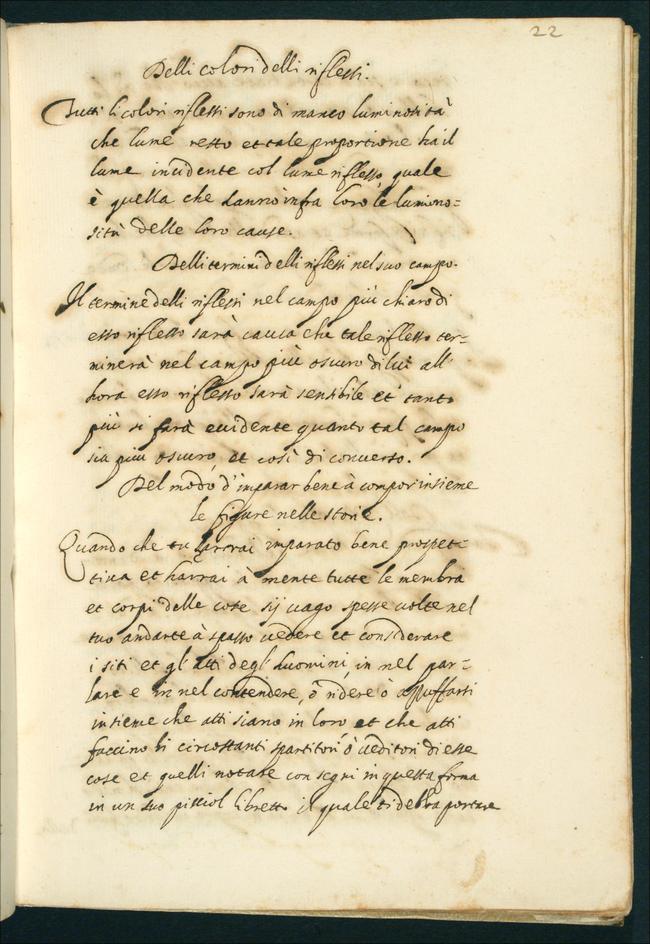 22
Delli colori delli riflessi.
Tutti li colori riflessi sono di manco luminosità
che lume retto et tale proportione ha il
lume incidente col lume riflesso, quale
è quella che hanno infra loro le lumino-
sità delle loro cause.
Delli termini delli riflessi nel suo campo.
Il termine delli riflessi nel campo più chiaro di
esso riflesso sarà causa che tale riflesso ter-
minerà nel campo più oscuro di lui all'
hora esso riflesso sarà sensibile et tanto
più si farà euidente quanto tal campo
sia più oscuro, et così di conuerso.
Del modo d'imparar bene à compor insieme
le figure nelle storie.
Quando che tu harrai imparato bene prospet-
tiua et harrai à mente tutte le membra
et corpi delle cose sij uago spesse uolte nel
tuo andarte à spasso uedere et considerare
i siti et gl'atti degl'huomini, in nel par-
lare e in nel contendere, ò ridere ò azzuffarsi
insieme che atti siano in loro, et che atti
faccino li circostanti spartitori, ò ueditori di esse
cose et quelli notare con segni in questa forma
in un suo picciol libretto il quale ti debba portare